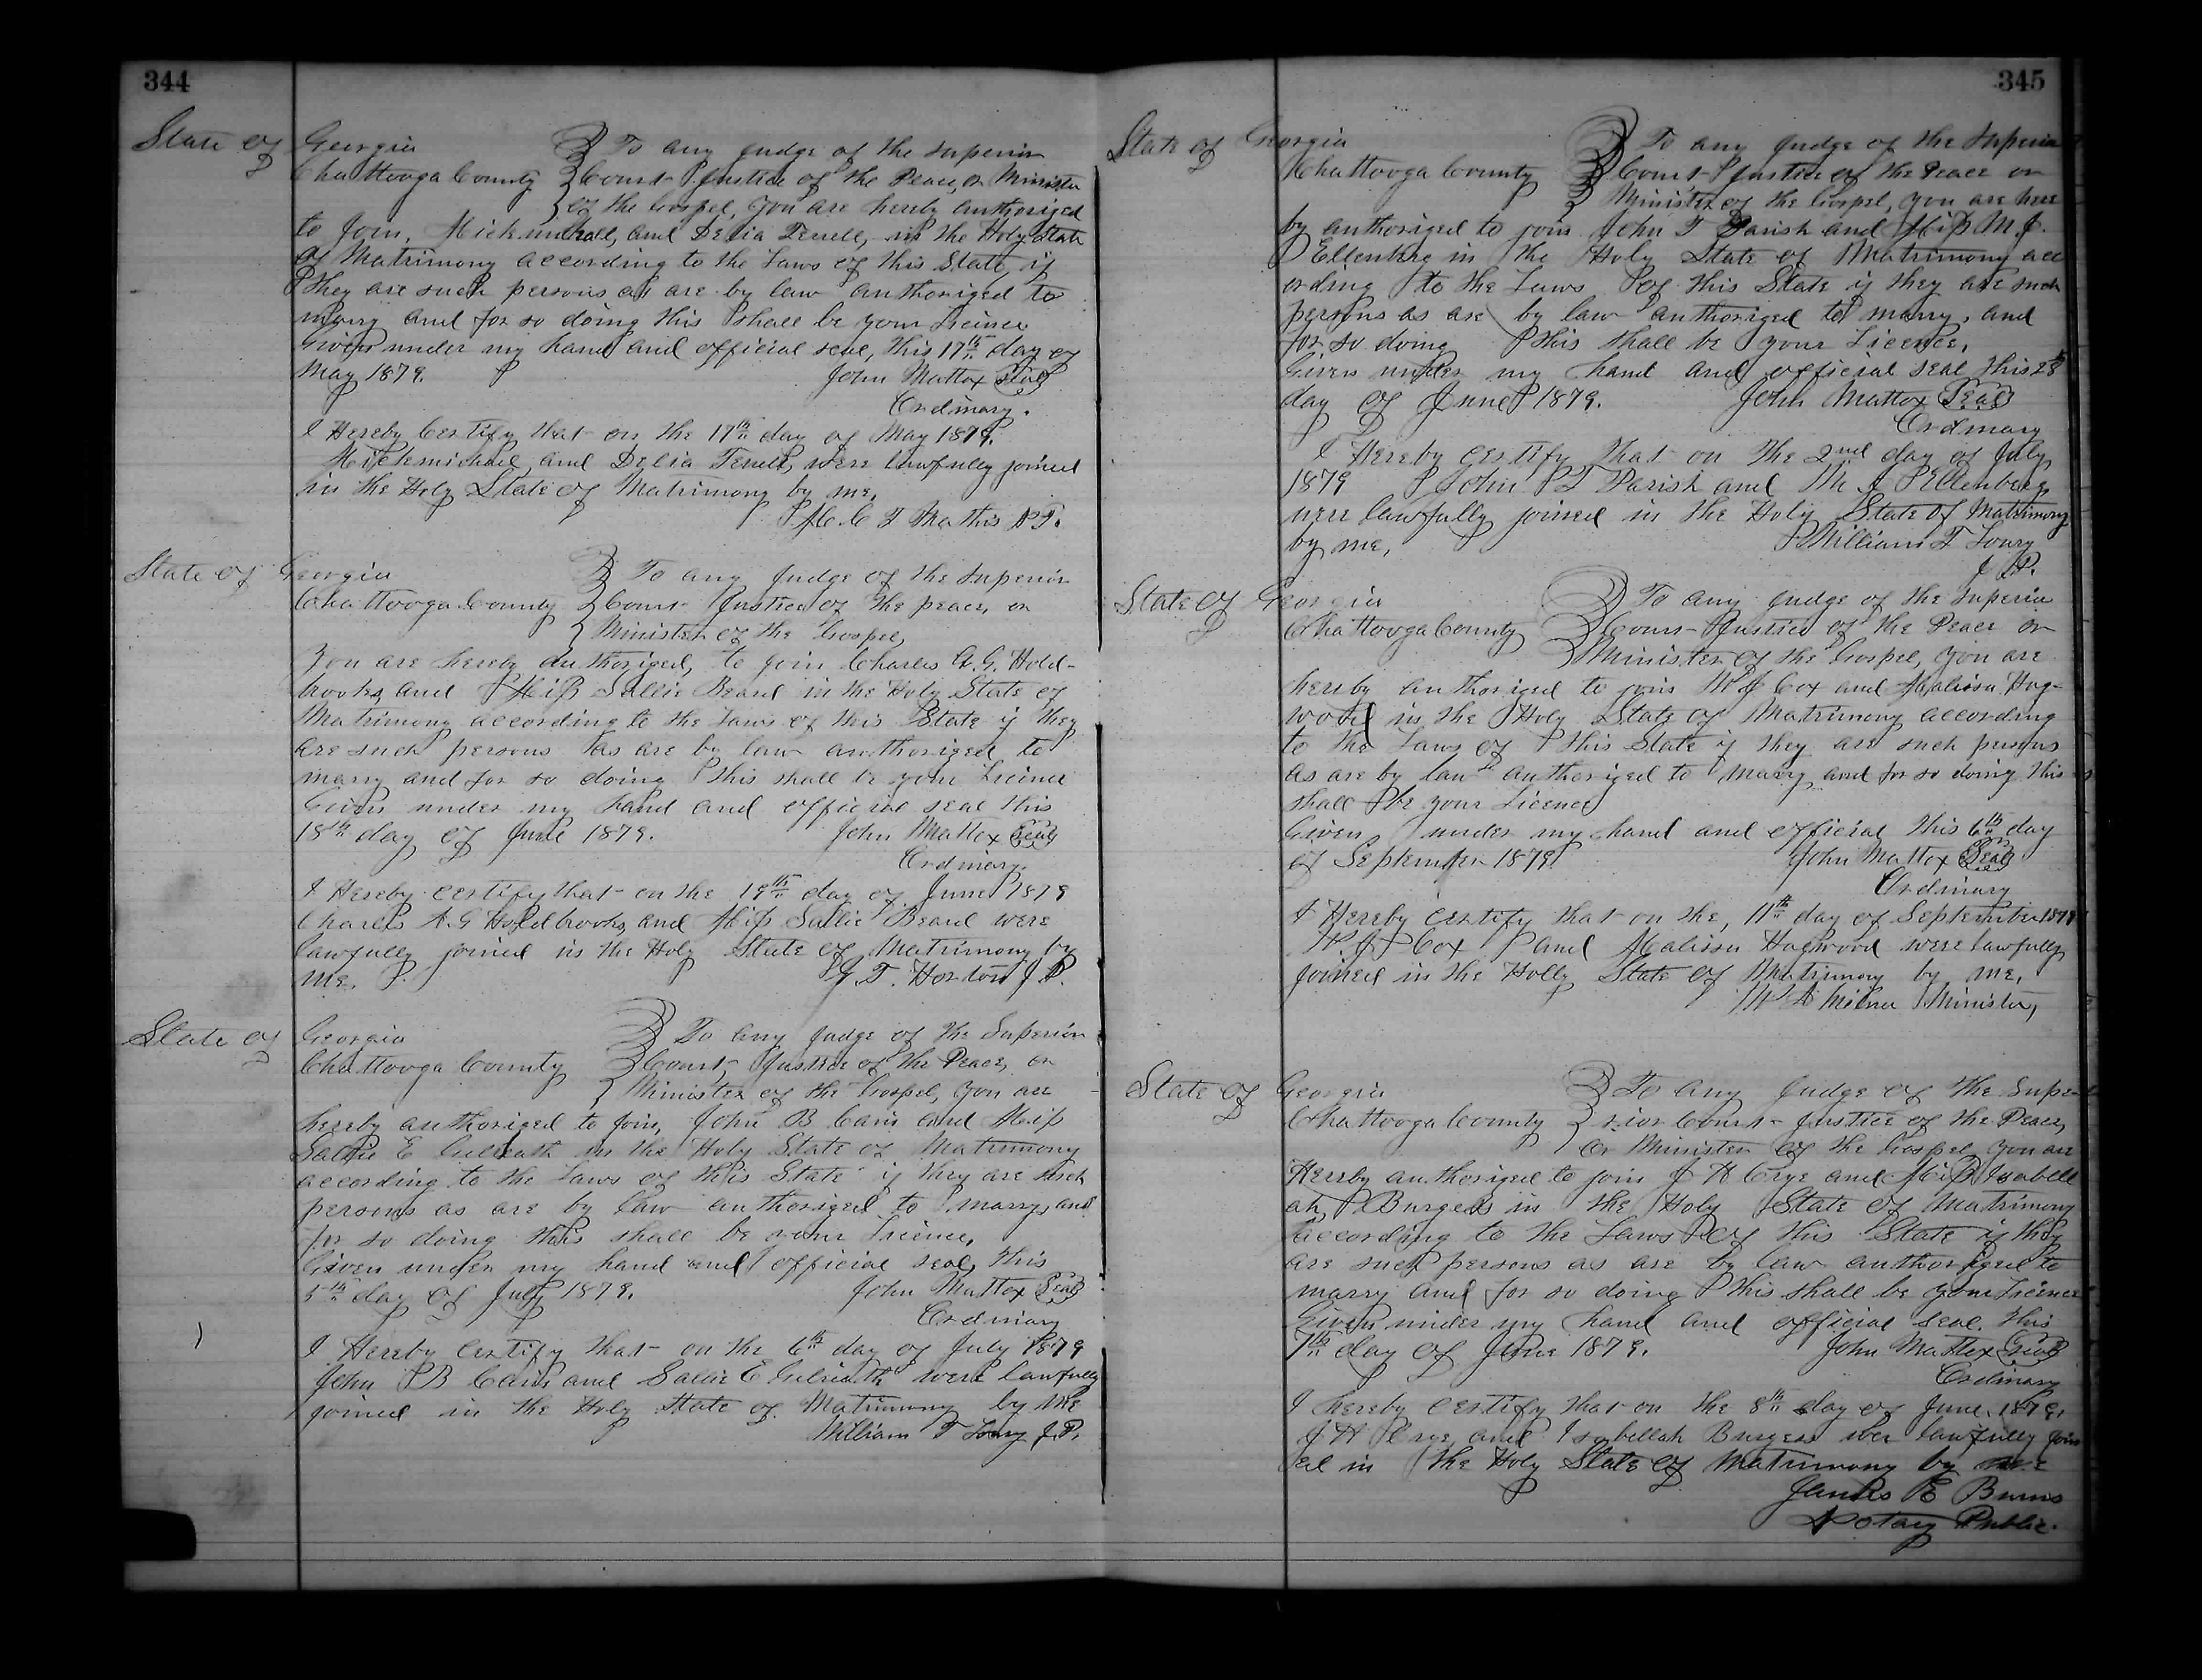 344
State of Georgia To any Judge of the Superior
Chattooga County Court Justice of the Peace, or Minister
of the Gospel, you are hereby authorized
to Join, and Delia Terrell, in the Holy State
of Matrimony according to the Laws of this State, if
they are such persons as are by law authorized to
marry and for so doing this shall be your Licence
Given under my hand and official seal, this 17th day of
May 1879. John Mattox Seal
Ordinary.
I Hereby Certify that on the 17th day of May 1879.
and Delia Terrell, were lawfully joined
in the Holy State of Matrimony by me.
C T Mathis
State of Georgia To any Judge of the Superior
Chattooga County Court Justice of the peace, or
Minister of the Gospel,
You are hereby authorized, to join Charles A.G. Hold-
brooks, and Miss Sallie Beard in the Holy State of
Matrimony according to the Laws of this State if they
are such persons as are by law authorized to
marry and for so doing this shall be your Licence
Given under my hand and official seal this
18th day of June 1879. John Mattox Seal
Ordinary.
I Hereby certify that on the 19th day of June 1879
Charles A.G Holdbrooks, and Miss Sallie Beard were
lawfully joined in the Holy State of Matrimony by
me. J. T. Horton J.P.
State of Georgia To any Judge of the Superior
Chattooga County Court, Justice of the Peace, or
Minister of the Gospel, you are
hereby authorized to join, John B and Miss
Sallie E in the Holy State of Matrimony
according to the Laws of this State if they are such
persons as are by law authorized to marry, and
for so doing this shall be your Licence,
Given under my hand and official seal, this
5th day of July 1879. John Mattox Seal
Ordinary
I Hereby Certify that on the 6th day of July 1879
John B and Sallie E were lawfully
joined in the Holy State of Matrimony by me
William T Lowry J.P.
345
State of Georgia To any Judge of the Superior
Chattooga County Court Justice of the Peace or
Minister of the Gospel, you are here
by authorized to join John T Parish and Miss M. J.
Ellenberg in the Holy State of Matrimony acc
ording to the Laws of this State if they are such
persons as are by law authorized to marry, and
for so doing this shall be your Licence,
Given under my hand and official seal this 28
day of June 1879. John Mattox Seal
Ordinary
I Hereby certify that on the 2nd day of July
1879 John T Parish and M J Ellenberg
were lawfully joined in the Holy State of Matrimony
by me, William T Lowry
J P.
State of Georgia To any Judge of the Superior
Chattooga County Court Justice of the Peace or
Minister of the Gospel, you are
hereby authorized to join W J Cox and Malissa Hag-
wood in the Holy State of Matrimony according
to the Laws of this State if they are such persons
as are by law authorized to marry and for so doing this
shall be your Licence
Given under my hand and official this 6th day
of September 1879. John Mattox Seal
Ordinary
I Hereby certify that on the, 11th day of September 1879
W. J Cox and Malissa Hagwood were lawfully
joined in the Holly State of Matrimony by me,
W A Milner Minister,
State of Georgia To any Judge of the Supe-
Chattooga County rior Court Justice of the Peace,
or Minister of the Gospel you are
Hereby authorized to join J H Crye and Miss Isabell
ah, Burgess in the Holy State of Matrimony
according to the Laws of this State if they
are such persons as are by law authorized to
marry and for so doing this shall be your Licence
Given under my hand and official seal. this
7th day of June 1879. John Mattox Seal
Ordinary
I hereby certify that on the 8th day of June 1879.
J H Crye, and Isabellah Burgess wer lawfully join
ed in the Holy State of Matrimony by me
James E Burns
Notary Public.